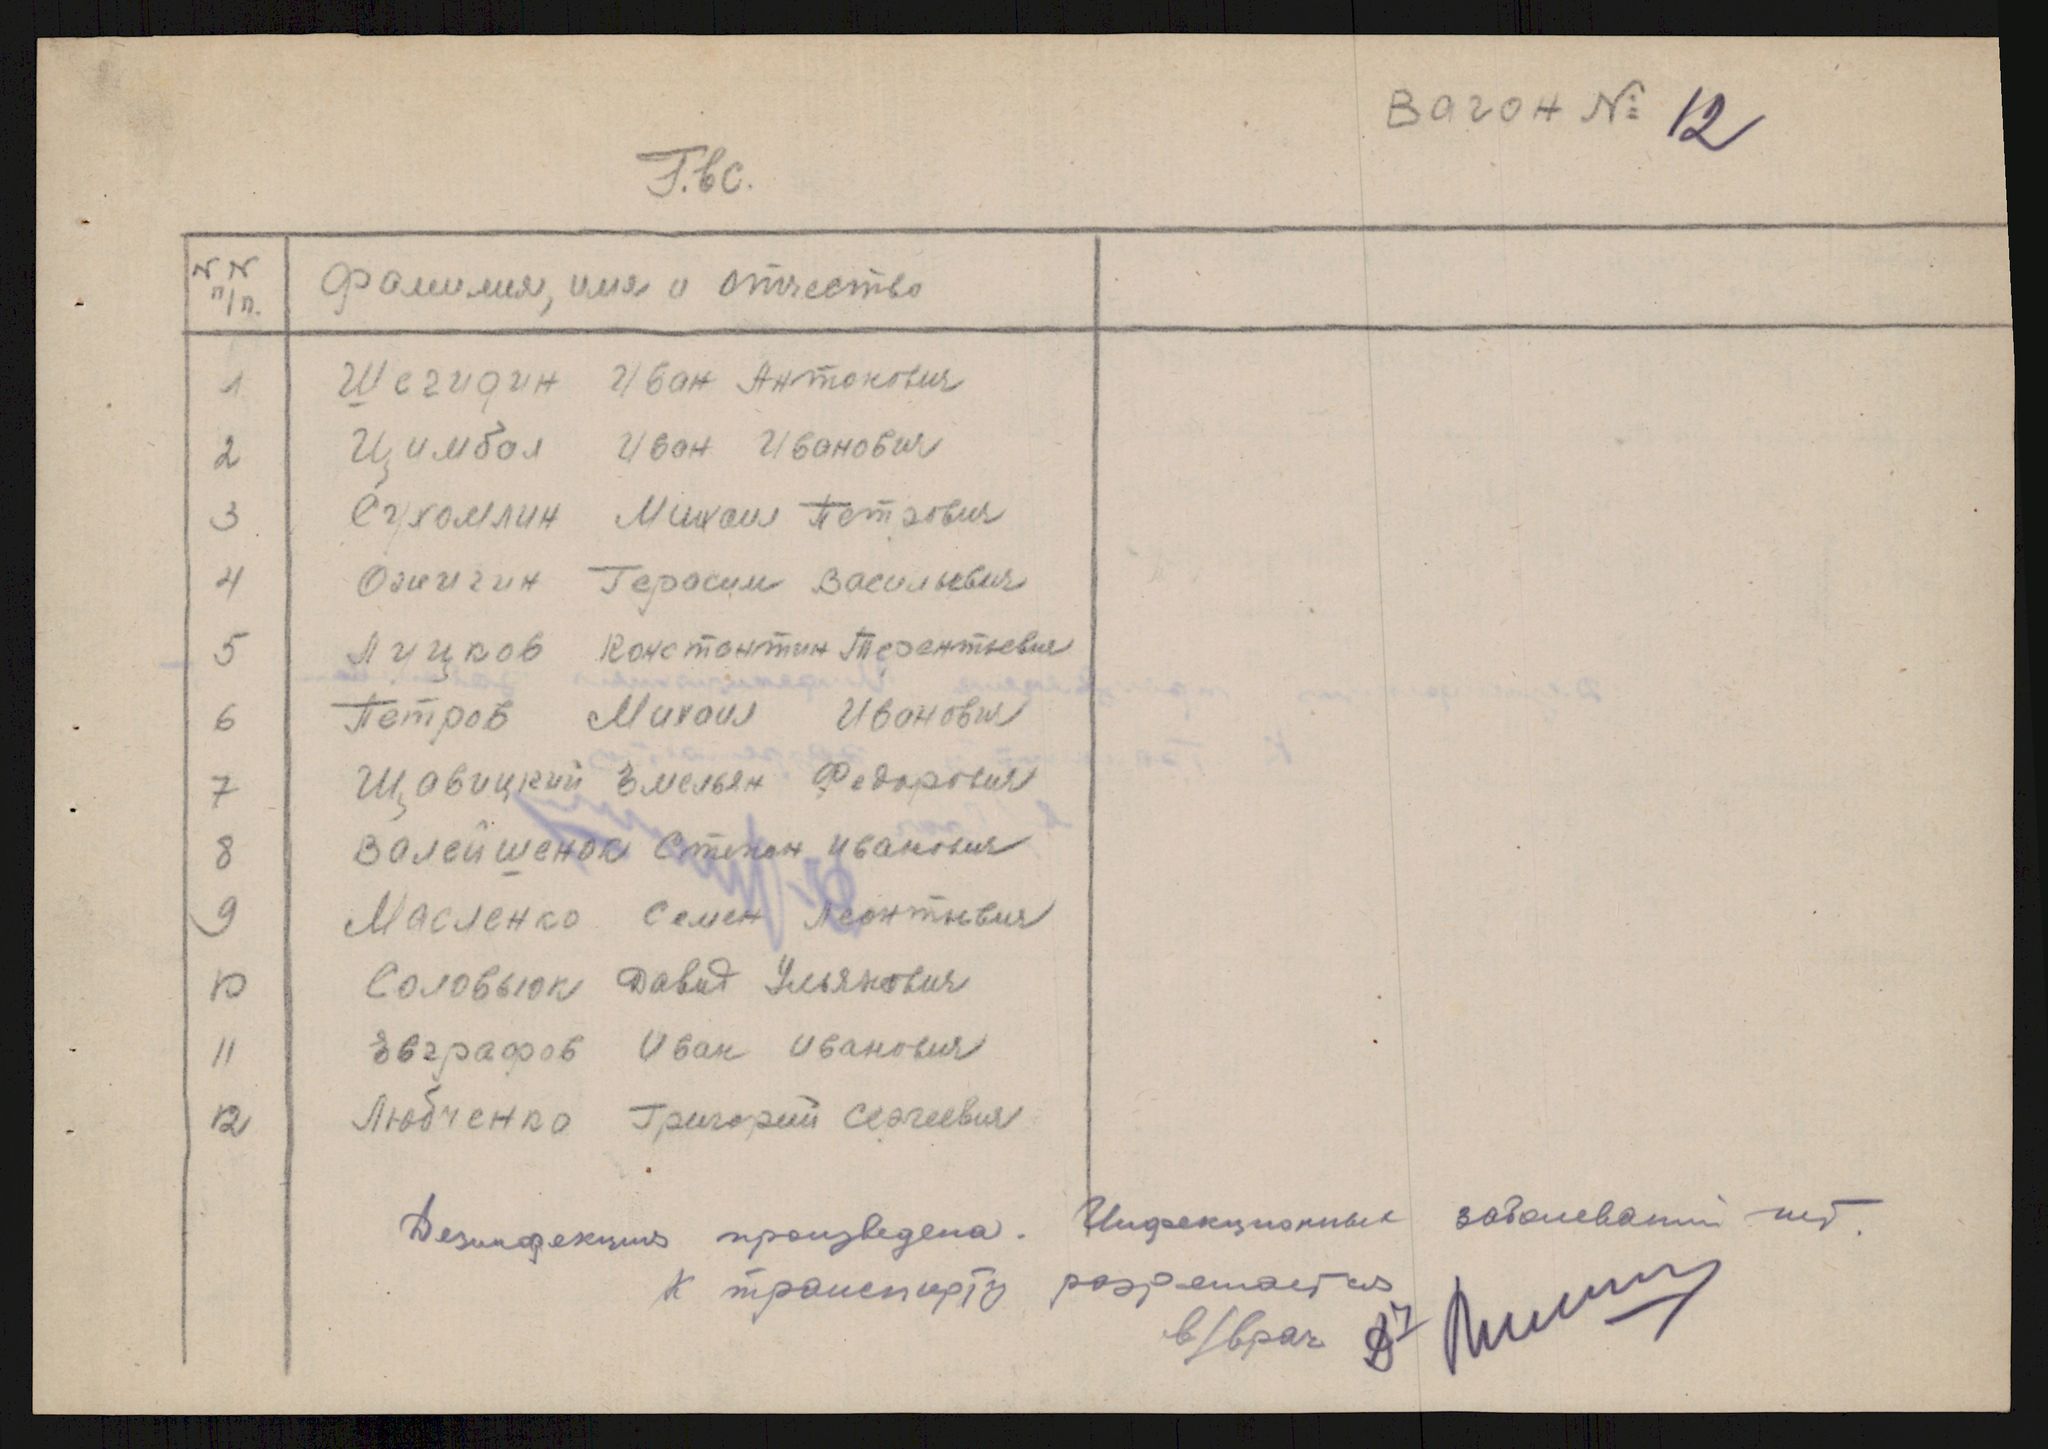 Вагон № 12
Г.вс.
N N п/п. Фамилия, имя и отчество
1 Шегидин Иван Антонович
2 Цимбал Иван Иванович
3 Сухомлин Михаил Петрович
4 Ожигин Герасим Васильевич
5 Луцков Константин Терентьевич
6 Петров Михаил Иванович
7 Щавицкий Емельян Федорович
8 Валейшенок Степан Иванович
9 Масленко Семен Леонтьевич
10 Соловьюк Давид Ульянович
11 Евграфов Иван Иванович
12 Любченко Григорий Сергеевич
Дезинфекция произведена. Инфекционных заболеваний нет.
К транспорту разрешается
в/врач